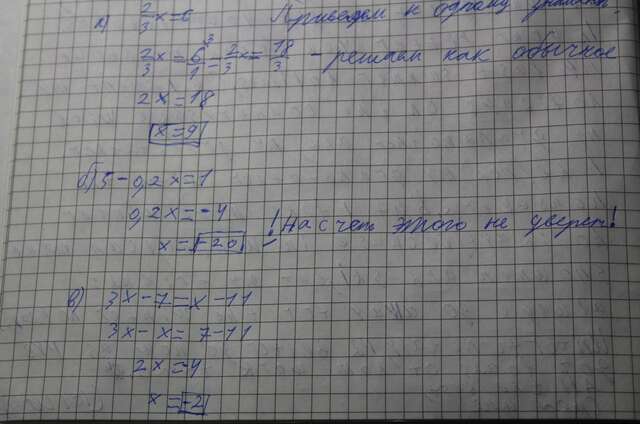 а) 2/3 x = 6 Приведем к одному знамен.
2/3 x = 6/1 ³ = 2/3 x = 18/3 - решаем как обычное
2x = 18
x = 9
б) 5 - 0,2x = 1
0,2x = -4
x = -20 ! На счет этого не уверен!
в) 3x - 7 = x - 11
3x - x = 7 - 11
2x = -4
x = -2